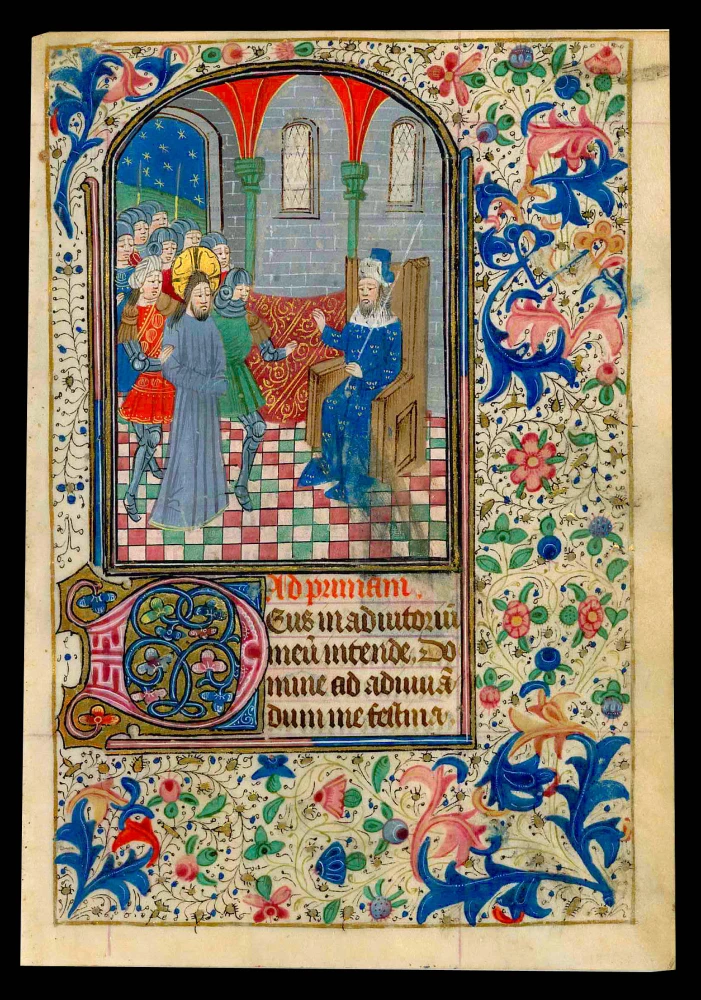 Ad primam.
Deus in adiutoriū
meū intende. Do
mine ad adiuuā
dum me festina.